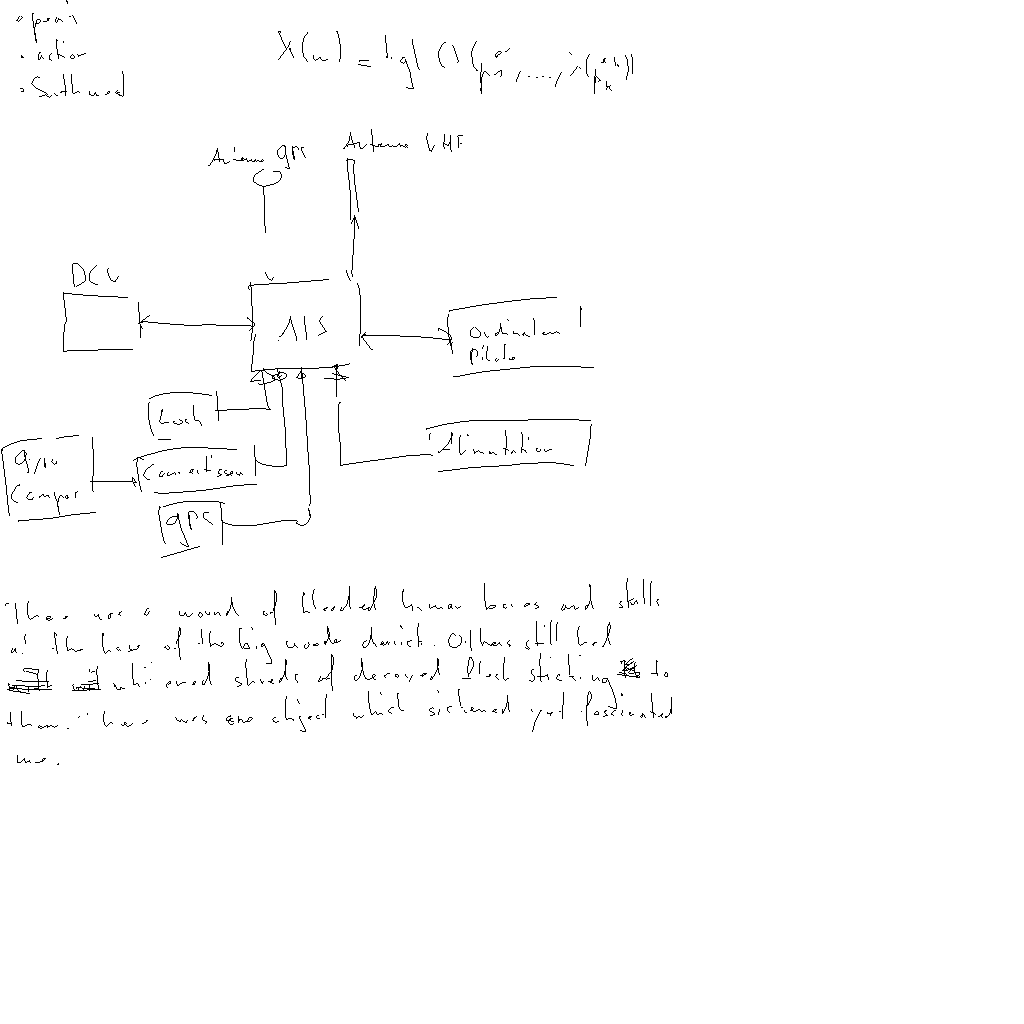 • action
λ(n) = lgl (λ(p₁^e₁), ...., λ(p_k^e_k))
Antenne GPS
Antenne VHF
DCU
AIS
Ordinateur
Pilote
Loch
Alimentation
Gyro
Compas
Convertisseur
GPS
There was a mound of bleeded human bones and skulls
at the base of the big wooden derrick. Others still had
whitened shreds of decayed flesh sticking to
them. There was one object which sickened yet fascinated
me.